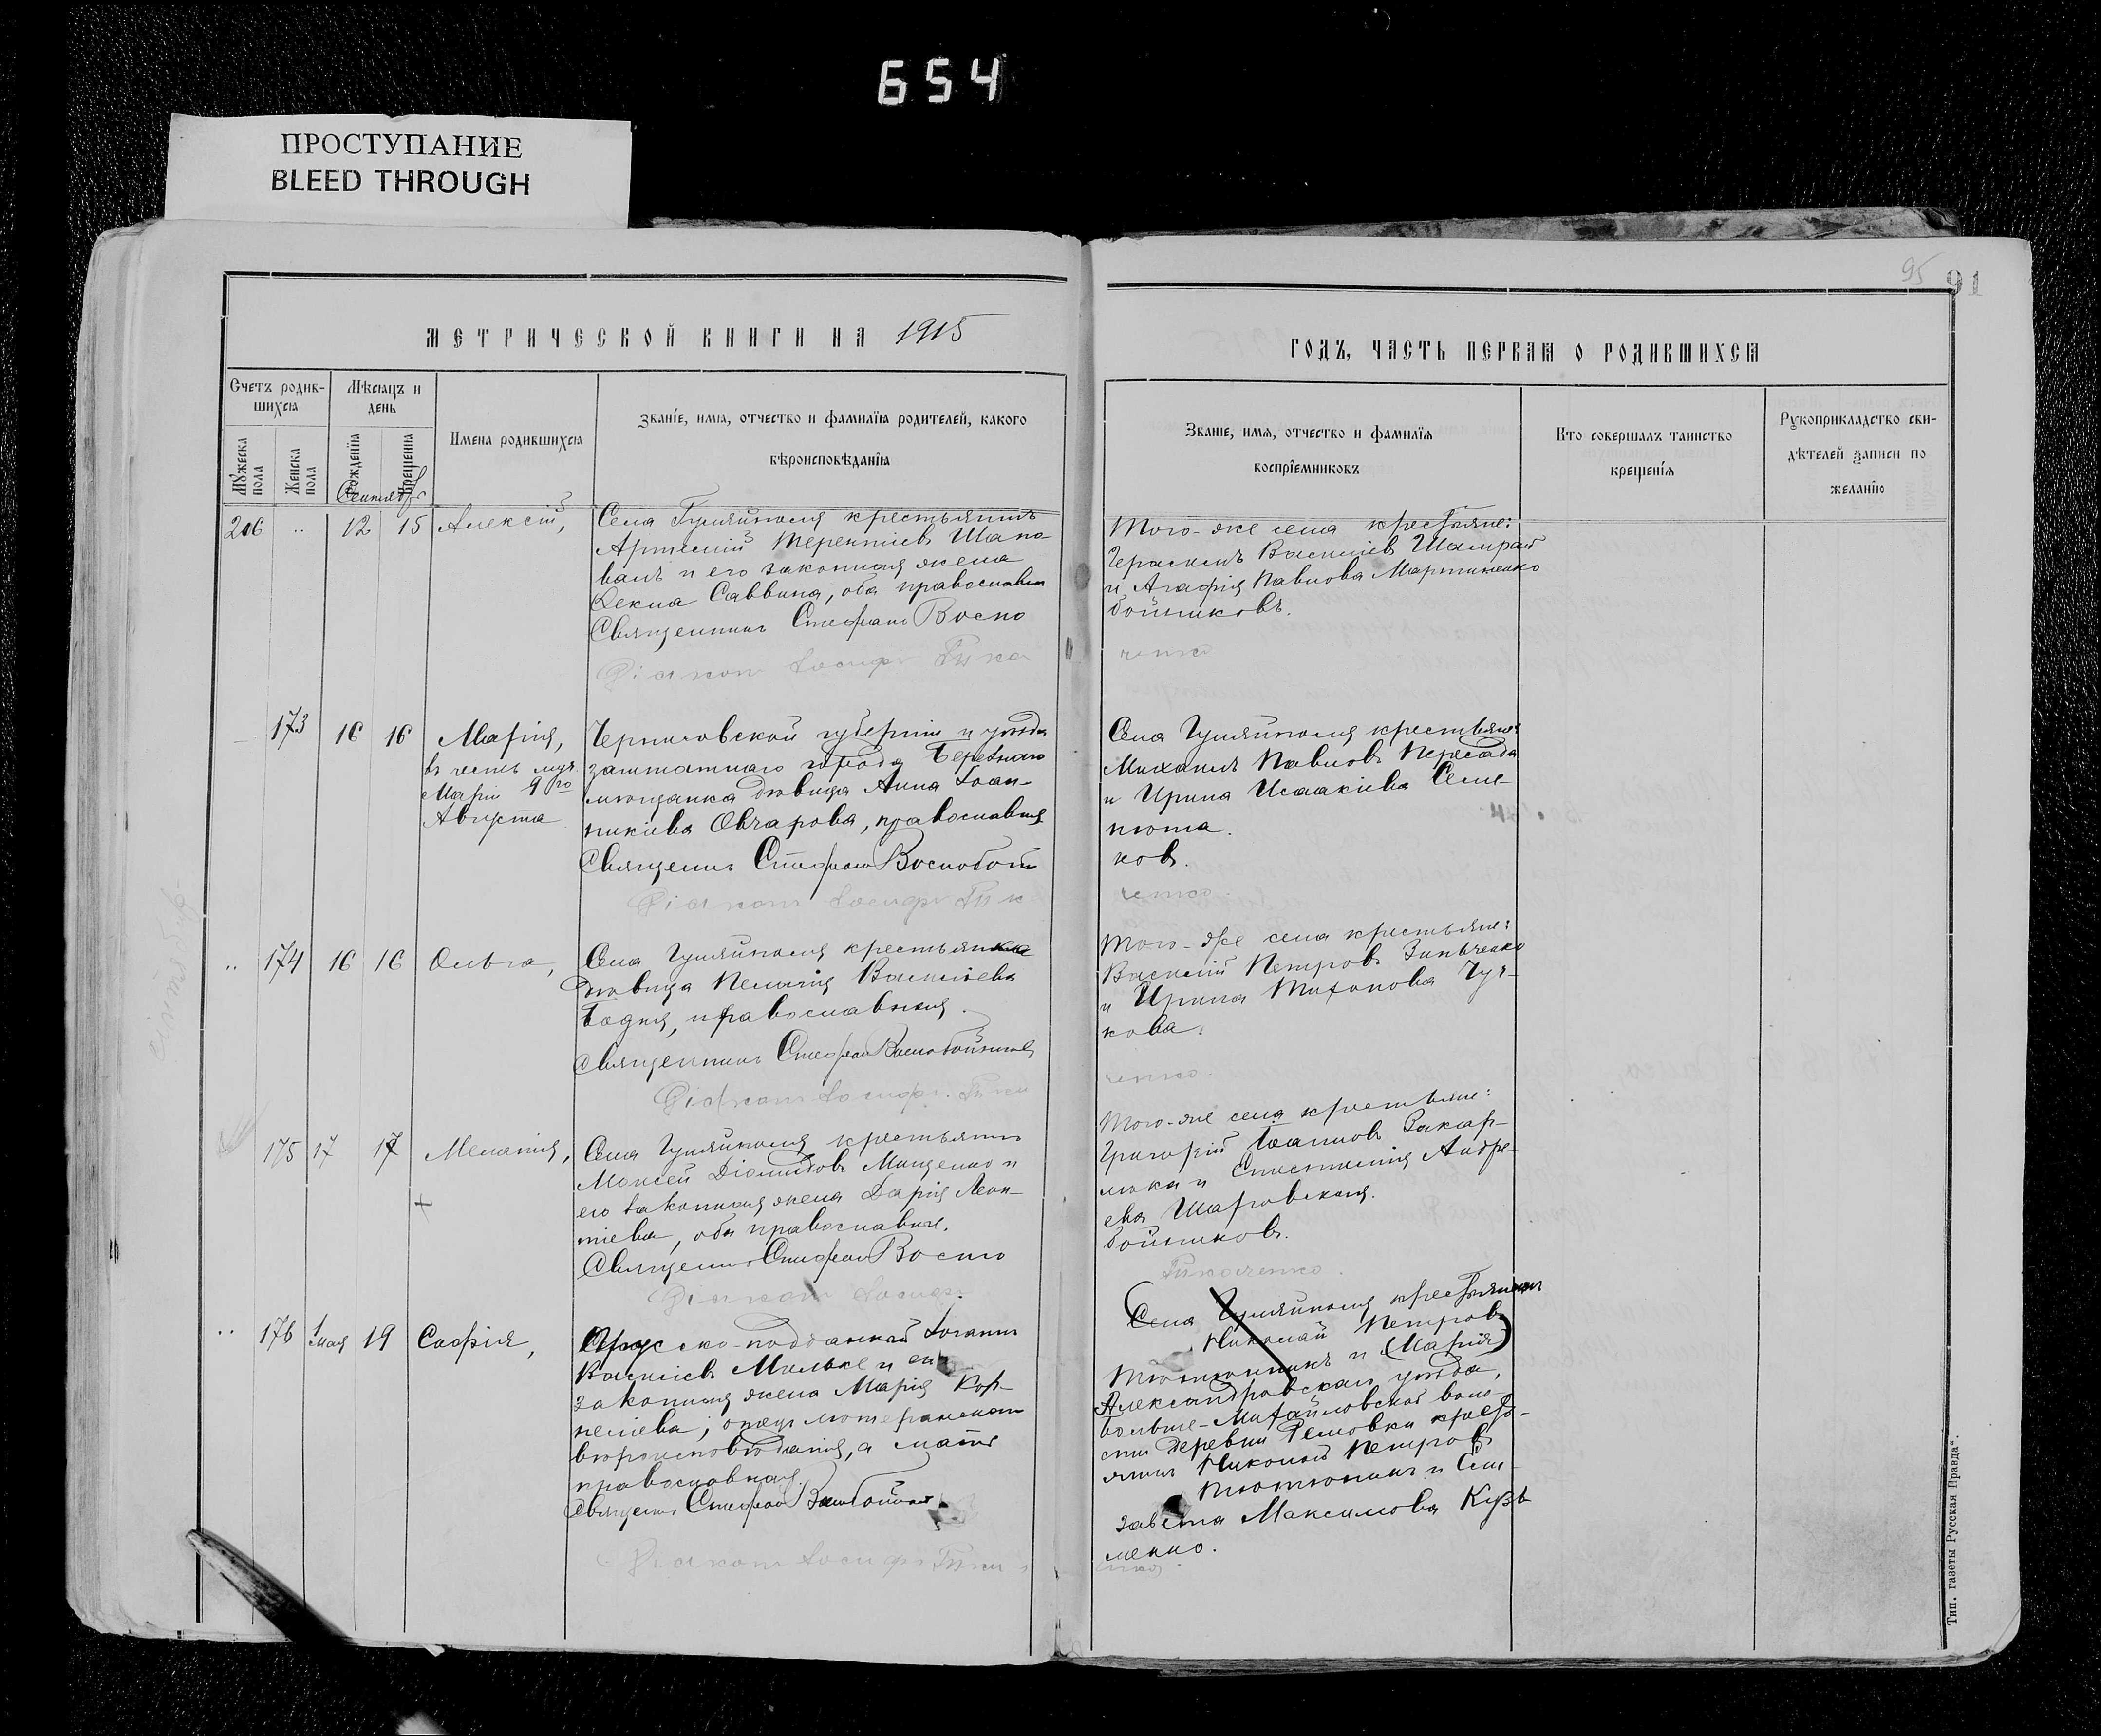 654
ПРОСТУПАНИЕ
BLEED THROUGH
95
91
МЕТРИЧЕСКОЙ КНИГИ НА 1915
ГОДЪ, ЧАСТЬ ПЕРВАЯ О РОДИВШИХСЯ
Счетъ родив-
шихся
Мѣсяцъ и
день
Мужеска
пола
Женска
пола
Рожденія
Крещенія
Имена родившихся
Званіе, имя, отчество и фамилія родителей, какого
вѣроисповѣданія
Званіе, имя, отчество и фамилія
воспріемниковъ
Кто совершалъ таинство
крещенія
Рукоприкладство сви-
дѣтелей записи по
желанію
Сентябрь
216 .. 12 15 Алексій,
Села Гуляйполя крестьянинъ
Артемій Терентіевъ Шапо-
валъ и его законная жена
Ѳекла Саввина, оба православны
Священникъ Стефанъ Воско
Діаконъ Іосифъ Гъ
Того-же села крестьяне:
Герасимъ Васильевъ Шамрай
и Агафія Павлова Мартыненко
бойниковъ.
ченко
173 16 16 Марія,
въ честь муч.
Маріи 9го
Августа
Черниговской губерніи и уѣзда
заштатнаго города Березнаго
мѣщанка дѣвица Анна Іоан-
никіева Овчарова, православная
Священникъ Стефанъ Воскобой
Діаконъ Іосифъ
Села Гуляйполя крестьяне:
Михаилъ Павловъ Пересада
и Ирина Исаакіева Семе-
нюта.
ковъ.
ченко.
.. 174 16 16 Ольга,
Села Гуляйполя крестьянка
дѣвица Пелагія Васильева
Бодня, православная.
Священникъ Стефанъ Воскобойниковъ
Діаконъ Іосифъ
Того-же села крестьяне:
Василій Петровъ Зинченко
и Ирина Тихонова Гуч-
кова.
ченко.
175 17 17 Меланія,
Села Гуляйполя крестьянинъ
Моисей Діомидовъ Мищенко и
его законная жена Дарія Леон-
тіева, оба православные.
Священникъ Стефанъ Воско
Діаконъ Іосифъ.
Того-же села крестьяне:
Григорій Іоанновъ Захар-
и Андре-
ева Шаровская.
бойниковъ.
.. 176 1 мая 19 Софія,
Прусско-подданный Іоаннъ
Васильевъ Мильке и его
законная жена Марія Кор-
неліева; отецъ лютеранскаго
вѣроисповѣданія, а мать
православная.
Священникъ Стефанъ Воскобойниковъ
Діаконъ Іосифъ
(Села Гуляйполя крестьянинъ
Николай Петровъ
Тютюнникъ и (Марія)
Александровскаго уѣзда,
Больше-Михайловской воло-
сти деревни крестья-
нинъ Николай Петровъ
Тютюнникъ и Ели-
завета Максимова Кузь
менко.
Тип. газеты „Русская Правда“.